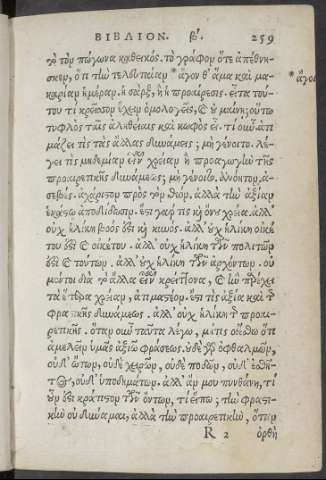 ΒΙΒΛΙΟΝ. β'. 259
τὸν πώγωνα καθεικός. τὸ γράφον ὅτε ἀπέθνη-
σκεν, ὅτι τὴν τελευταίαν *ἄγον θ' ἅμα καὶ μα-
*ἄγον
καρίαν ἡμέραν, ἡ σὰρξ, ἢ ἡ προαίρεσις. εἶτα τού-
του τι κρεῖσσον ἔχειν ὁμολογεῖς, καὶ οὐ μαίνῃ; οὕτω
τυφλὸς ταῖς ἀληθείαις καὶ κωφὸς εἶ. τί οὖν; ἀτι-
μάζει τις τὰς ἄλλας δυνάμεις; μὴ γένοιτο. λέ-
γει τὶς μηδεμίαν εἶναι χρείαν ἢ προαγωγὴν τῆς
προαιρετικῆς δυνάμεως; μὴ γένοιτο. ἀνόητον, ἀ-
σεβές. ἀχάριστον πρὸς τὸν θεόν. ἀλλὰ τὴν ἀξίαν
ἑκάστῳ ἀποδίδωσιν. ἔστι γάρ τις καὶ ὄνου χρεία. ἀλλ'
οὐχ ἡλίκη βοός. ἔστι καὶ κυνός. ἀλλ' οὐχ ἡλίκη οἰκέ
του. ἔστι καὶ οἰκέτου. ἀλλ' οὐχ ἡλίκη τῶν πολιτῶν.
ἔστι καὶ τούτων. ἀλλ' οὐχ ἡλίκη τῶν ἀρχόντων. οὐ
μέντοι διὰ τὸ ἄλλα εἶναι κρείττονα, καὶ ἣν παρέχει
τὰ ἕτερα χρείαν, ἀτιμαστέον. ἔστι τὶς ἀξία καὶ τῆς
φραστικῆς δυνάμεως. ἀλλ' οὐχ ἡλίκη τῆς προαι-
ρετικῆς. ὅταν οὖν ταῦτα λέγω, μήτις οἰέσθω ὅτι
ἀμελεῖν ὑμᾶς ἀξιῶ φράσεως. οὐδὲ γὰρ ὀφθαλμῶν,
οὐδ' ὤτων, οὐδὲ χειρῶν, οὐδὲ ποδῶν, οὐδ' ἐσθῆ-
τος, οὐδ' ὑποδημάτων. ἀλλ' ἄν μου πυνθάνῃ, τί
οὖν ἐστὶ κράτιστον τῶν ὄντων, τί εἴπω; τὴν φραστι-
κὴν οὐ δύναμαι, ἀλλὰ τὴν προαιρετικὴν, ὅταν
R 2 ὀρθὴ